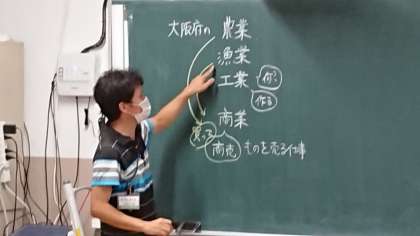 大阪府の 農業
漁業
工業 何?
作る
商業
買って 商売 ものを売る仕事